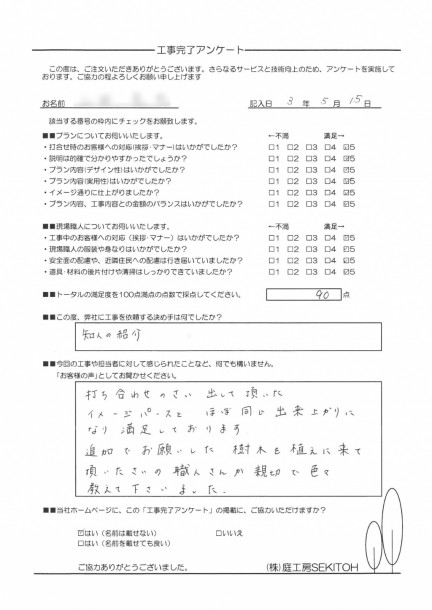 工事完了アンケート
この度は、ご注文いただきありがとうございます。さらなるサービスと技術向上のため、アンケートを実施して
おります。ご協力の程よろしくお願い申し上げます
お名前 記入日 3 年 5 月 15 日
該当する番号の枠内にチェックをお願致します。
■■プランについてお伺いいたします。 ←不満 満足→
・打合せ時のお客様への対応(挨拶・マナー)はいかがでしたか? □1 □2 □3 □4 ☑5
・説明は的確で分かりやすかったでしょうか? □1 □2 □3 □4 ☑5
・プラン内容(デザイン性)はいかがでしたか? □1 □2 □3 □4 ☑5
・プラン内容(実用性)はいかがでしたか? □1 □2 □3 □4 ☑5
・イメージ通りに仕上がりましたか? □1 □2 □3 □4 ☑5
・プラン内容、工事内容との金額のバランスはいかがでしたか? □1 □2 □3 □4 ☑5
■■現場職人についてお伺いいたします。 ←不満 満足→
・工事中のお客様への対応(挨拶・マナー)はいかがでしたか? □1 □2 □3 □4 ☑5
・現場職人の服装や身なりはいかがでしたか? □1 □2 □3 □4 ☑5
・安全面の配慮や、近隣住民への配慮は行き届いていましたか? □1 □2 □3 □4 ☑5
・道具・材料の後片付けや清掃はしっかりできていましたか? □1 □2 □3 □4 ☑5
■■トータルの満足度を100点満点の点数で採点してください。 90 点
■■この度、弊社に工事を依頼する決め手は何でしたか?
知人の紹介
■■今回の工事や担当者に対して感じられたことなど、何でも構いません。
「お客様の声」としてお聞かせください。
打ち合わせのさい 出して頂いた
イメージパースと ほぼ同じ出来上がりに
なり 満足しております
追加でお願いした 樹木を植えに来て
頂いたさいの職人さんが親切で色々
教えて下さいました.
■■当社ホームページに、この「工事完了アンケート」の掲載に、ご協力いただけますか?
☑はい(名前は載せない) □いいえ
□はい(名前を載せても良い)
ご協力ありがとうございました。 (株)庭工房SEKITOH